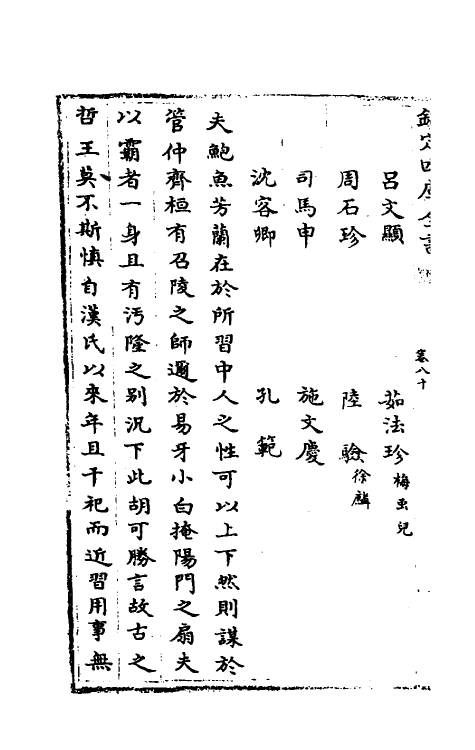 欽定四庫全書
卷八十
呂文顯 茹法珍 梅蟲兒
周石珍 陸驗 徐驎
司馬申 施文慶
沈客卿 孔範
夫鮑魚芳蘭在於所習中人之性可以上下然則謀於
管仲齊桓有召陵之師邇於易牙小白掩陽門之扇夫
以霸者一身且有汚隆之别況下此胡可勝言故古之
哲王莫不斯慎自漢氏以來年且千祀而近習用事無